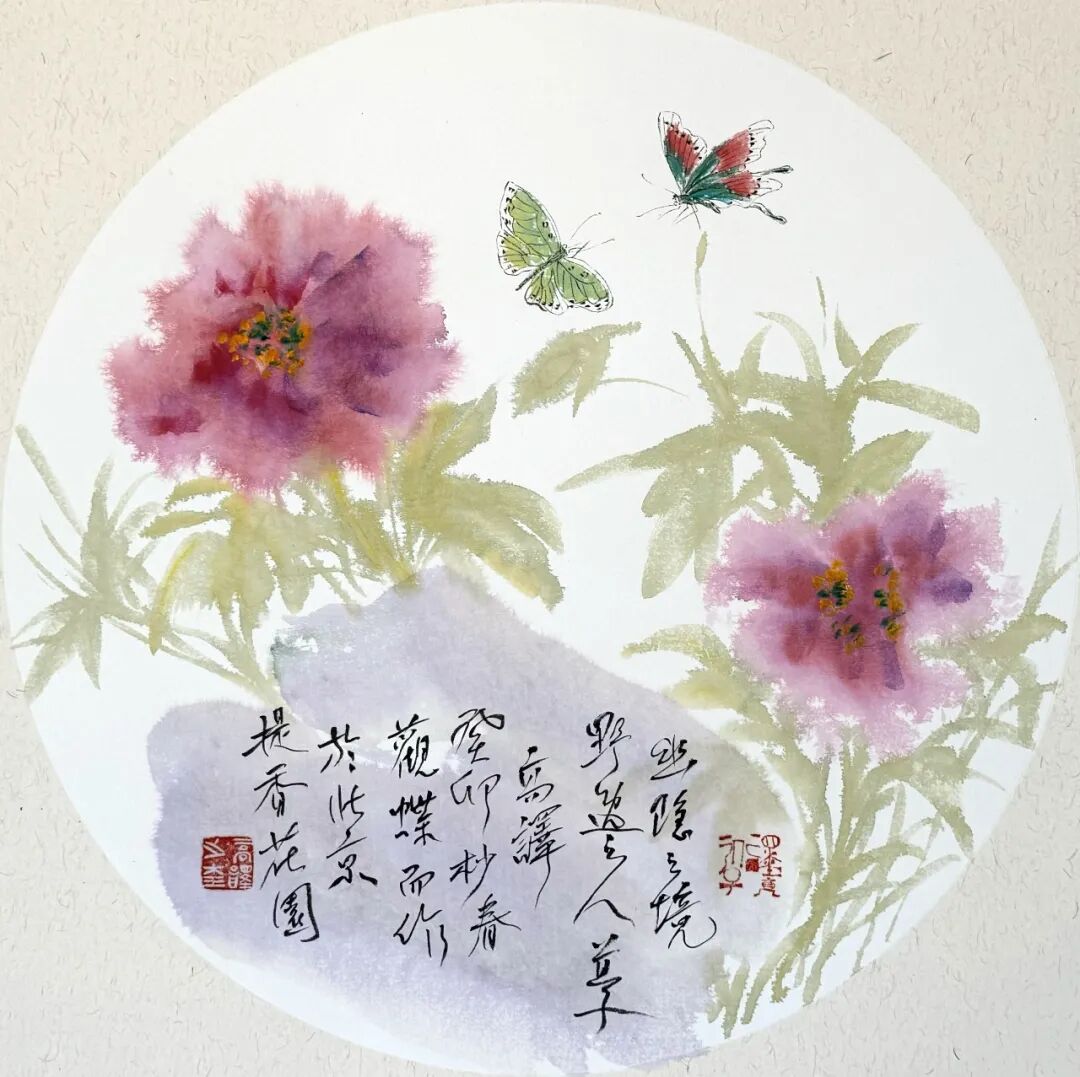 幽隐之境
野逸之人
高譯
癸卯杪春
觀蝶而作
於北京
提香花園